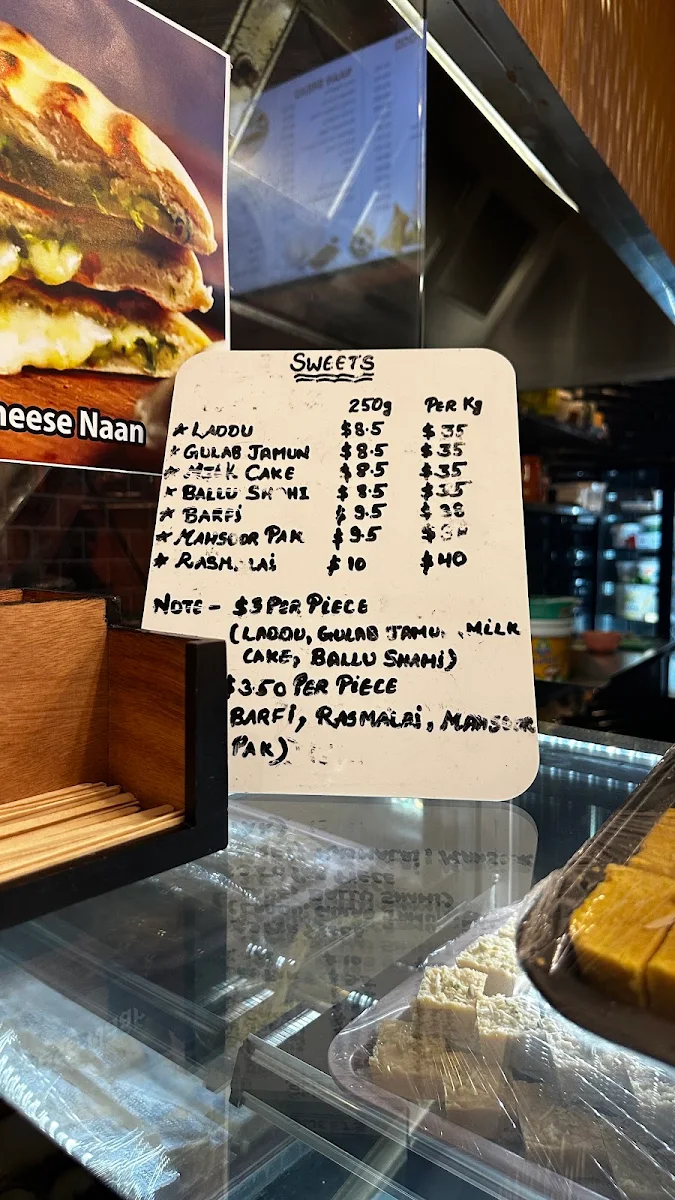 heese Naan
SWEETS
250g PER Kg
* LADDU $8.5 $35
* GULAB JAMUN $8.5 $35
* MILK CAKE $8.5 $35
* BALLU SHAHI $8.5 $35
* BARFi $9.5 $38
* MAHSOOR PAK $9.5
* RASMALAI $10 $40
NOTE - $3 PER PiECE
(LADDU, GULAB JAMU , MiLK
CAKE, BALLU SHAHi)
$3.50 PER PiECE
BARFi, RASMALAi, MAHSOOR
PAK)